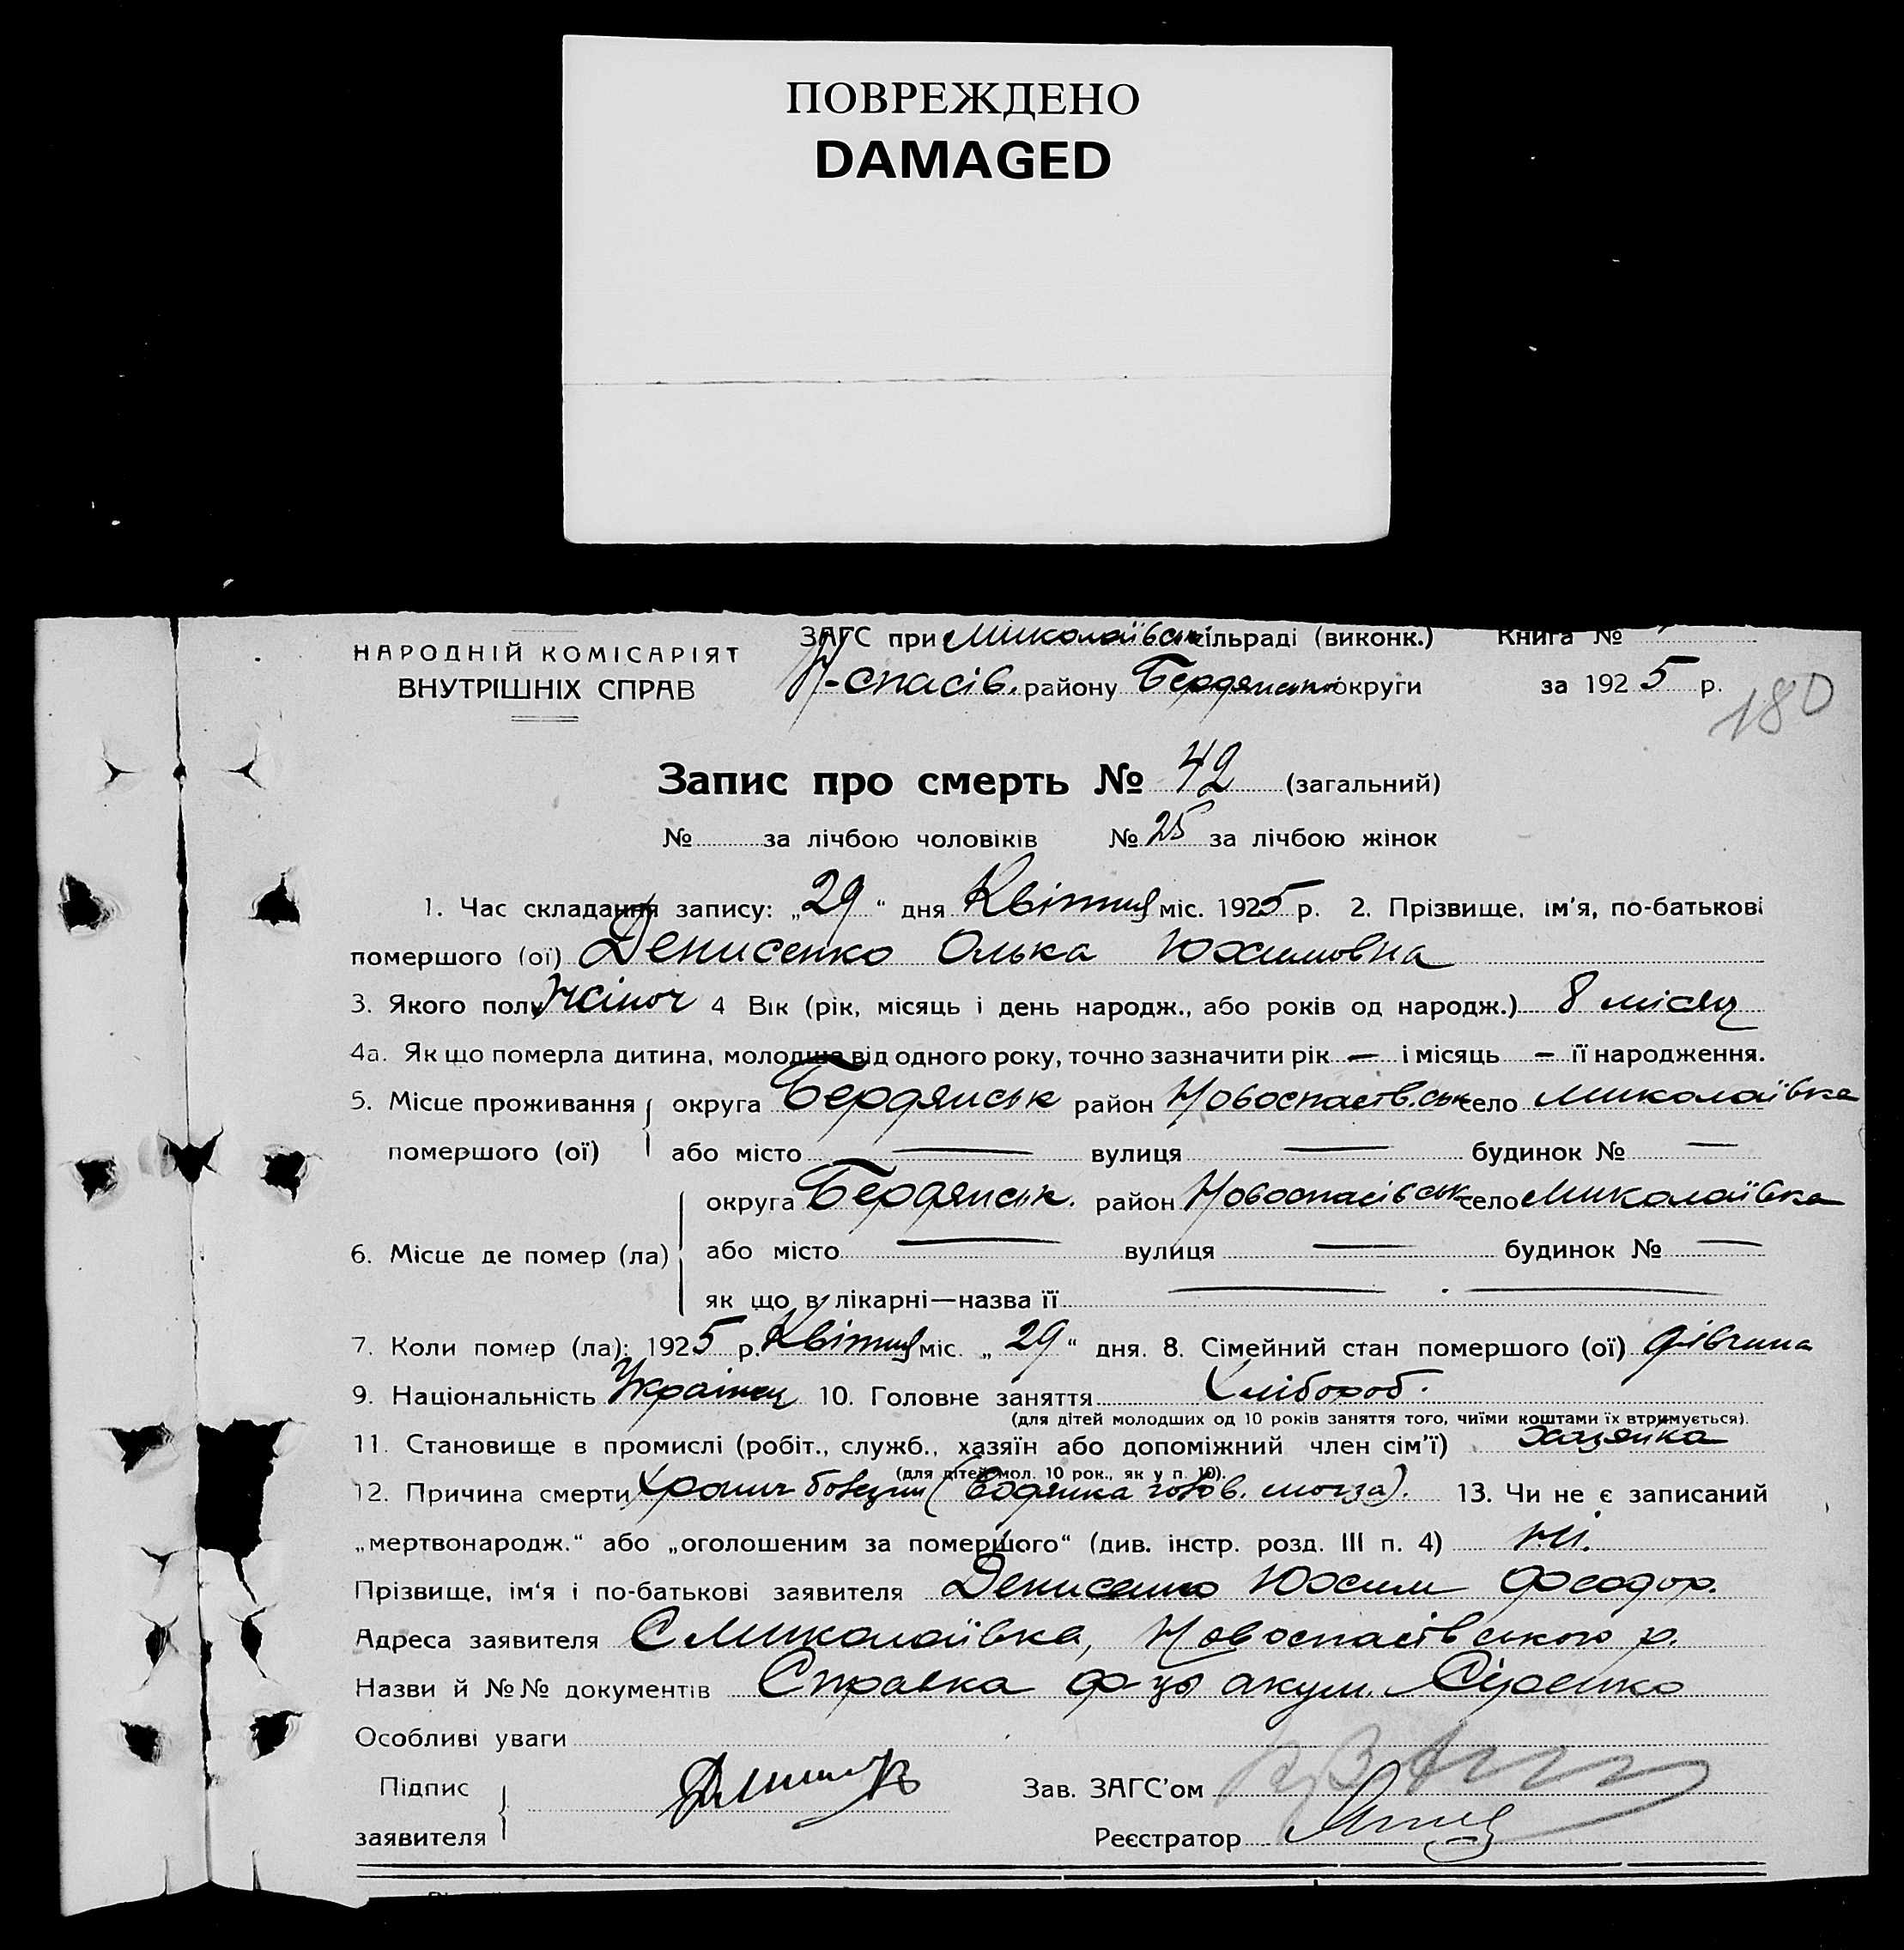 ПОВРЕЖДЕНО
DAMAGED
НАРОДНІЙ КОМІСАРІЯТ
ВНУТРІШНІХ СПРАВ
ЗАГС при Миколаївськ сільраді (виконк.) Книга №
Н-спасів. району Бердянськ округи за 1925 р.
180
Запис про смерть № 42 (загальний)
№ за лічбою чоловіків № 25 за лічбою жінок
1. Час складання запису: „29“ дня Квітня міс. 1925 р. 2. Прізвище, ім'я, по-батькові
помершого (ої) Денисенко Олька Юхимовна
3. Якого полу жіноч 4 Вік (рік, місяць і день народж., або років од народж.) 8 місяц
4а. Як що померла дитина, молодша від одного року, точно зазначити рік — і місяць — її народження.
5. Місце проживання округа Бердянськ район Новоспасівськ село Миколаївка
помершого (ої) або місто — вулиця — будинок № —
округа Бердянськ. район Новоспасівськ село Миколаївка
6. Місце де помер (ла) або місто — вулиця — будинок № —
як що в лікарні—назва її — —
7. Коли помер (ла): 1925 р. Квітня міс. „29“ дня. 8. Сімейний стан помершого (ої) дівчина
9. Національність Українец 10. Головне заняття Хлібороб.
(для дітей молодших од 10 років заняття того, чиїми коштами їх втримується).
11. Становище в промислі (робіт., служб., хазяїн або допоміжний член сім'ї) Хазяйка
(для дітей мол. 10 рок., як у п. 10).
12. Причина смерти (Водянка голов. мозга). 13. Чи не є записаний
„мертвонародж.“ або „оголошеним за помершого“ (див. інстр. розд. III п. 4) ні.
Прізвище, ім'я і по-батькові заявителя Денисенко Юхим Феодор.
Адреса заявителя С Миколаївка, Новоспасівського р.
Назви й №№ документів Справка ф-цы акуш.
Особливі уваги
Підпис
заявителя
Зав. ЗАГС'ом
Реєстратор